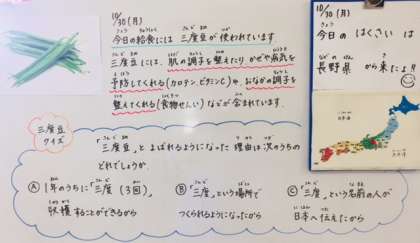 10/30(月)
今日の給食には 三度豆が使われています。
三度豆には、肌の調子を整えたり かぜや病気を
予防してくれる(カロテン、ビタミンC)や、おなかの調子を
整えてくれる(食物せんい)などが含まれています。
三度豆
クイズ
「三度豆」とよばれるようになった理由は次のうちの
どれでしょうか。
Ⓐ 1年のうちに「三度(3回)」
収穫することができるから
Ⓑ 「三度」という場所で
つくられるようになったから
Ⓒ 「三度」という名前の人が
日本へ伝えたから
10/30(月)
今日の はくさい は
長野県 から来たよ!!